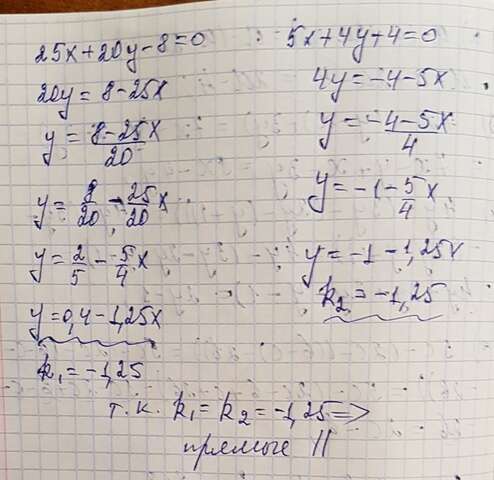 25x+20y-8=0
20y=8-25x
y=\frac{8-25x}{20}
y=\frac{8}{20}-\frac{25}{20}x
y=\frac{2}{5}-\frac{5}{4}x
y=0,4-1,25x
k₁=-1,25
5x+4y+4=0
4y=-4-5x
y=\frac{-4-5x}{4}
y=-1-\frac{5}{4}x
y=-1-1,25x
k₂=-1,25
т.к. k₁=k₂=-1,25⇒
прямые ||